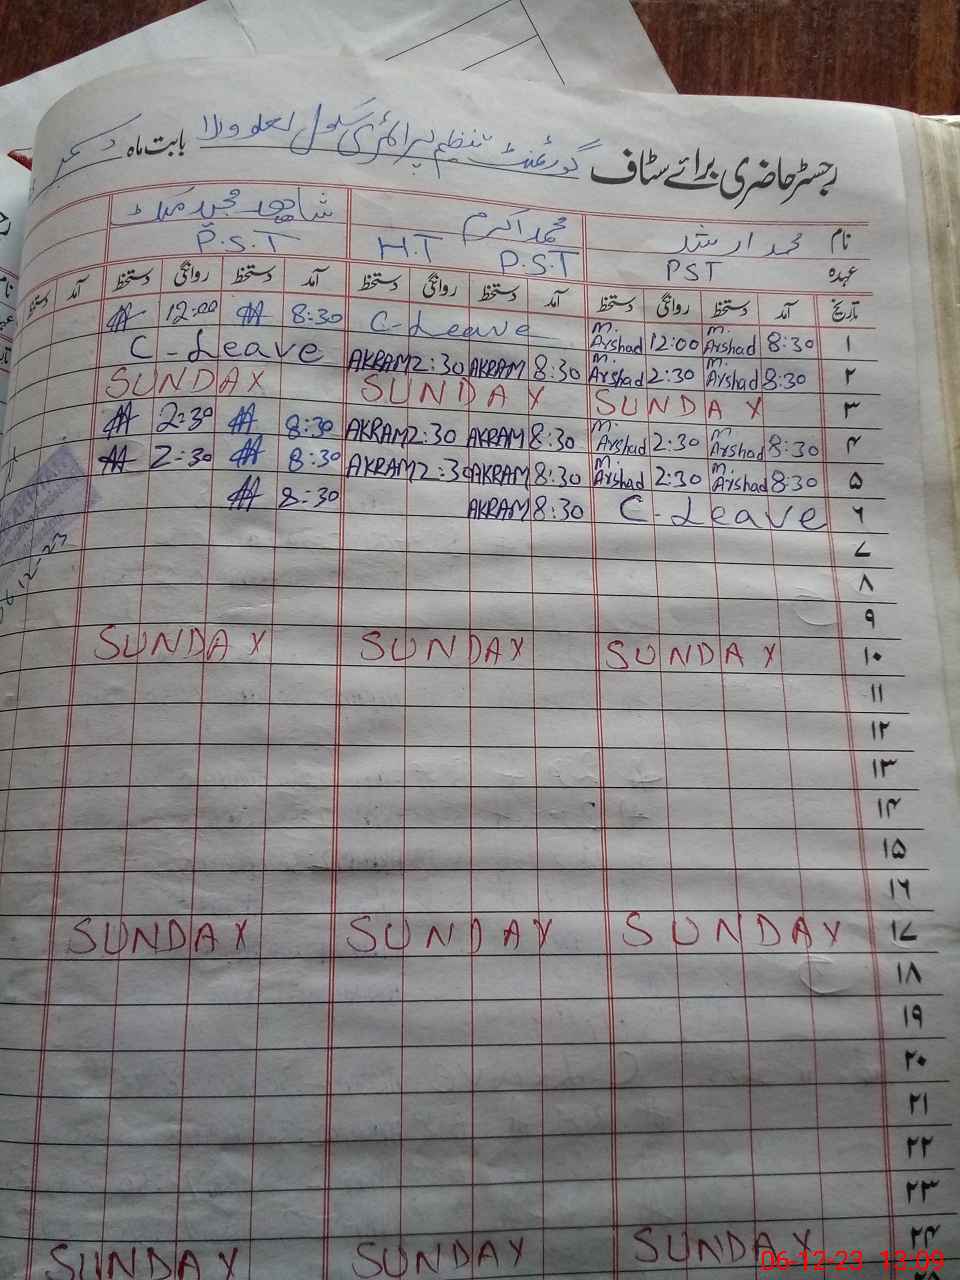 رجسٹر حاضری برائے سٹاف گورنمنٹ تنظیم پرائمری سکول لعلو والا بابت ماہ دسمبر
نام محمد ارشد محمد اکرم شاہد مجید
عہدہ PST P.S.T H.T P.S.T
تاریخ آمد دستخط روانگی دستخط آمد دستخط روانگی دستخط آمد دستخط روانگی دستخط آمد دستخط
۱ 8:30 M. Arshad 12:00 M. Arshad C-Leave 8:30 12:00
۲ 8:30 M. Arshad 2:30 M. Arshad 8:30 AKRAM 2:30 AKRAM C-Leave
۳ SUNDAY SUNDAY SUNDAY
۴ 8:30 M. Arshad 2:30 M. Arshad 8:30 AKRAM 2:30 AKRAM 8:30 2:30
۵ 8:30 M. Arshad 2:30 M. Arshad 8:30 AKRAM 2:30 AKRAM 8:30 2:30
۶ C-Leave 8:30 AKRAM 8:30
۷
۸
۹
۱۰ SUNDAY SUNDAY SUNDAY
۱۱
۱۲
۱۳
۱۴
۱۵
۱۶
۱۷ SUNDAY SUNDAY SUNDAY
۱۸
۱۹
۲۰
۲۱
۲۲
۲۳
۲۴ SUNDAY SUNDAY SUNDAY
06-12-23 13:09